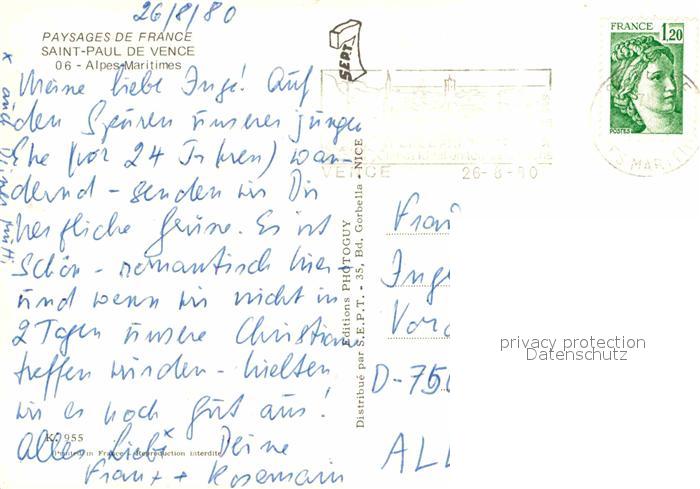 26/8/80
PAYSAGES DE FRANCE
SAINT-PAUL DE VENCE
06 - Alpes-Maritimes
Meine liebe Inge! Auf
den Spuren unserer jungen
Ehe (vor 24 Jahren) wan-
dernd - senden wir Dir
herzliche Grüße. Es ist
schön - romantisch hier -
und wenn wir nicht in
2 Tagen unsere Christiane
treffen würden - hielten
wir es noch gut aus!
Alles Liebe x Deine
Franz + Rosemarie
x auch Deiner Mutti
K. 955
Printed in France - Reproduction interdite
Editions PHOTOGUY
Distribué par S.E.P.T. - 35, Bd. Gorbella - NICE
SEPT
VENCE 26-8-80
FRANCE 1,20
POSTES
Frau
Inge
D-75
AL
privacy protection
Datenschutz